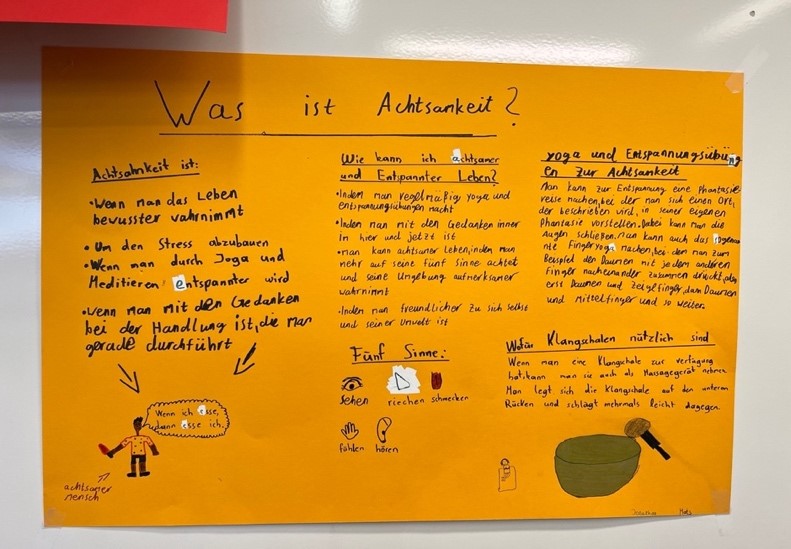 Was ist Achtsankeit?
Achtsahnkeit ist:
•Wenn man das Leben
bevusster vahrnimmt
• Um den Stress abzubauen
•Wenn man durch Joga und
Meditieren entspannter wird
•Wenn man mit den Gedanken
bei der Handlung ist, die man
gerade durchführt
Wenn ich esse,
dann esse ich.
achtsamer
Mensch
Wie kann ich achtsamer
und Entspannter Leben?
•Indem man regelmäßig yoga und
entspannungsübungen macht
•Inden man mit den Gedanken inner
In hier und jetzt ist
•man kann achtsamer Leben, inden man
mehr auf seine fünf Sinne achtet
und seine Umgebung aufmerksamer
wahrnimmt
•Inden man freundlicher zu sich selbst
und seiner Umwelt ist
Fünf Sinne:
sehen riechen schmecken
fühlen hören
yoga und Entspannungsübung
en zur Achtsamkeit
Man kann zur Entspannung eine Phantasie-
reise machen, bei der man sich einen Ort,
der beschrieben wird, in seiner eigenen
Phantasie vorstellen. Dabei kann man die
Augen schließen. Man kann auch das sogenan
nte Fingeryoga machen, bei den man zum
Beispiel den Daumen mit jedem anderen
Finger nacheinander zusammen drückt, also
erst Daumen und Zeigefinger, dann Daumen
und Mittelfinger und so weiter.
Wofür Klangschalen nützlich sind
Wenn man eine Klangschale zur verfügung
hat, kann man sie auch als Massagegerät nehmen.
Man legt sich die Klangschale auf den unteren
Rücken und schlägt mehrmals leicht dagegen.